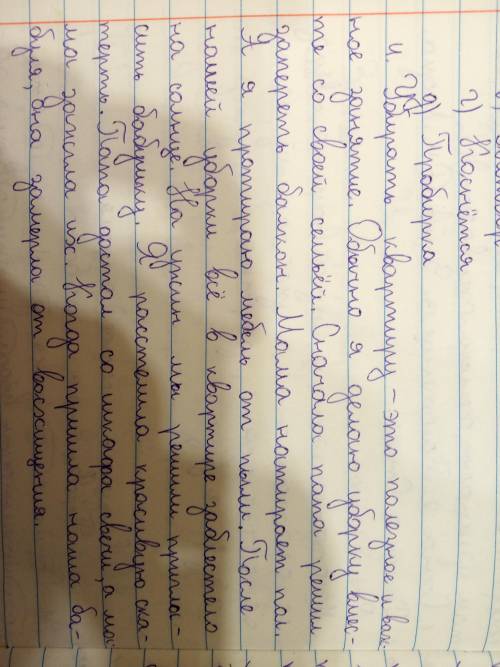 г) Коснётся
д) Пробирка
4. Убирать квартиру – это полезное и важ-
ное занятие. Обычно я делаю уборку вмес-
те со своей семьёй. Сначала папа решил
запереть балкон. Мама натирает пол.
А я протираю мебель от пыли. После
нашей уборки всё в квартире заблестело
на солнце. На ужин мы решили пригла-
сить бабушку. Я расстелила красивую ска-
терть. Папа достал со шкафа свечи, а ма-
ма зажгла их. Когда пришла наша ба-
буля, она замерла от восхищения.